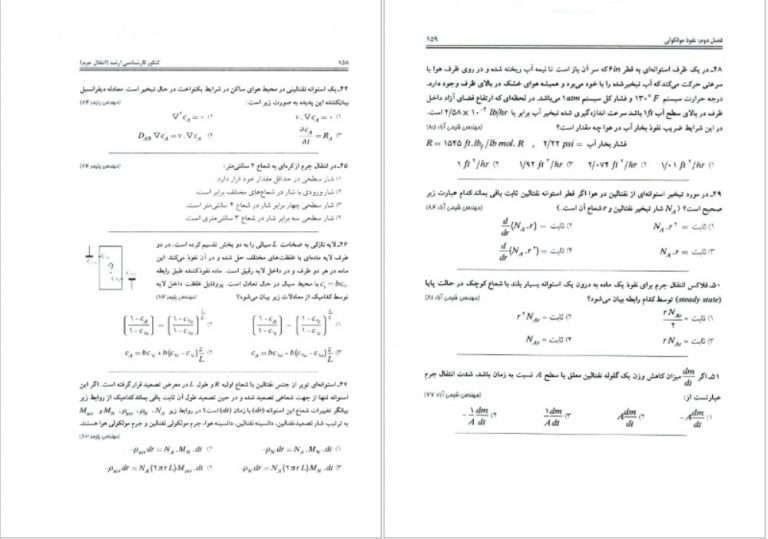 ۱۵۸
کنکور کارشناسی ارشد (انتقال جرم)
۴۴ـ یک استوانه نفتالینی در محیط هوای ساکن در شرایط یکنواخت در حال تبخیر است. معادله دیفرانسیل
بیان‌کننده این پدیده به صورت زیر است:
(مهندسی پلیمر ۸۴)
۱) v . ∇c_A = ۰
۲) ∇²c_A = ۰
۳) ∂c_A/∂t = R_A
۴) D_AB ∇c_A = v . ∇c_A
۴۵ـ در انتقال جرم از کره‌ای به شعاع ۲ سانتی‌متر:
(مهندسی پلیمر ۸۶)
۱) شار سطحی در حداقل مقدار خود قرار دارد.
۲) شار ورودی با شار در شعاع‌های مختلف برابر است.
۳) شار سطحی چهار برابر شار در شعاع ۴ سانتی‌متر است.
۴) شار سطحی سه برابر شار در شعاع ۳ سانتی‌متری است.
۴۶ـ لایه نازکی به ضخامت L سیالی را به دو بخش تقسیم کرده است. در دو
طرف لایه ماده‌ای با غلظت‌های مختلف حل شده و در آن نفوذ می‌کند. این
ماده در هر دو طرف و در داخل لایه رقیق است. ماده نفوذکننده طبق رابطه
c_i = bc با محیط سیال در حال تعادل است. پروفایل غلظت داخل لایه
توسط کدامیک از معادلات زیر بیان می‌شود؟
۴۷ـ استوانه‌ای توپر از جنس نفتالین با شعاع اولیه R و طول L در معرض تصعید قرار گرفته است. اگر این
استوانه تنها از جهت شعاعی تصعید شده و در حین تصعید طول آن ثابت باقی بماند کدامیک از روابط زیر
بیانگر تغییرات شعاع این استوانه (dr) با زمان (dt) است؟ در روابط زیر N_A ، ρ_N ، ρ_air ، M_N و M_air
به ترتیب شار تصعید نفتالین، دانسیته نفتالین، دانسیته هوا، جرم مولکولی نفتالین و جرم مولکولی هوا هستند.
۱) -ρ_N dr = N_A . M_N . dt
۲) -ρ_air dr = N_A . M_N . dt
۳) -ρ_N dr = N_A (۲πrL) M_N . dt
۴) -ρ_air dr = N_A (۲πrL) M_air . dt
فصل دوم: نفوذ مولکولی
۱۵۹
۴۸ـ در یک ظرف استوانه‌ای به قطر ۶in که سر آن باز است تا نیمه آب ریخته شده و در روی ظرف هوا با
سرعتی حرکت می‌کند که آب تبخیرشده را با خود می‌برد و همیشه هوای خشک در بالای ظرف وجود دارد.
درجه حرارت سیستم ۱۳۰° F و فشار کل سیستم ۱atm می‌باشد. در لحظه‌ای که ارتفاع فضای آزاد داخل
ظرف در بالای سطح آب ۱ft باشد سرعت اندازه‌گیری شده تبخیر آب برابر با lb/hr است.
در این شرایط ضریب نفوذ بخار آب در هوا چه مقدار است؟
R = ۱۵۴۵ ft.lb_f / lb mol. R , ۲/۲۲ psi = فشار بخار آب
۱) ۱/۰۱ ft²/hr ۲) ۲/۰۷۴ ft²/hr ۳) ۱/۹۲ ft²/hr ۴) ۱ ft²/hr
۴۹ـ در مورد تبخیر استوانه‌ای از نفتالین در هوا اگر قطر استوانه نفتالین ثابت باقی بماند کدام عبارت زیر
صحیح است؟ (N_A شار تبخیر نفتالین و r شعاع آن است.)
۱) ثابت = N_A . r²
۲) ثابت = d/dr (N_A . r)
۳) ثابت = N_A . r
۴) ثابت = d/dr (N_A . r²)
۵۰ـ فلاکس انتقال جرم برای نفوذ یک ماده به درون یک استوانه بسیار بلند با شعاع کوچک در حالت پایا
(steady state) توسط کدام رابطه بیان می‌شود؟
۱) ثابت = rN_Ar/۲
۲) ثابت = r²N_Ar
۳) ثابت = rN_Ar
۴) ثابت = N_Ar
۵۱ـ اگر dm/dt میزان کاهش وزن یک گلوله نفتالین معلق با سطح A نسبت به زمان باشد، شدت انتقال جرم
عبارتست از:
۱) -A dm/dt ۲) A dm/dt ۳) ۱/A dm/dt ۴) -۱/A dm/dt